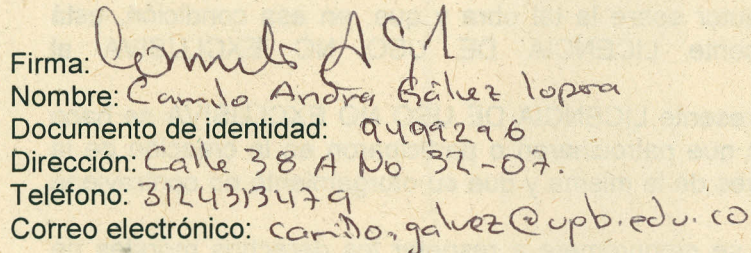 Firma: Camilo AG1
Nombre: Camilo Andrés Gálvez lopera
Documento de identidad: 9499296
Dirección: Calle 38 A No 32-07.
Teléfono: 3124313479
Correo electrónico: camilo.galvez@upb.edu.co